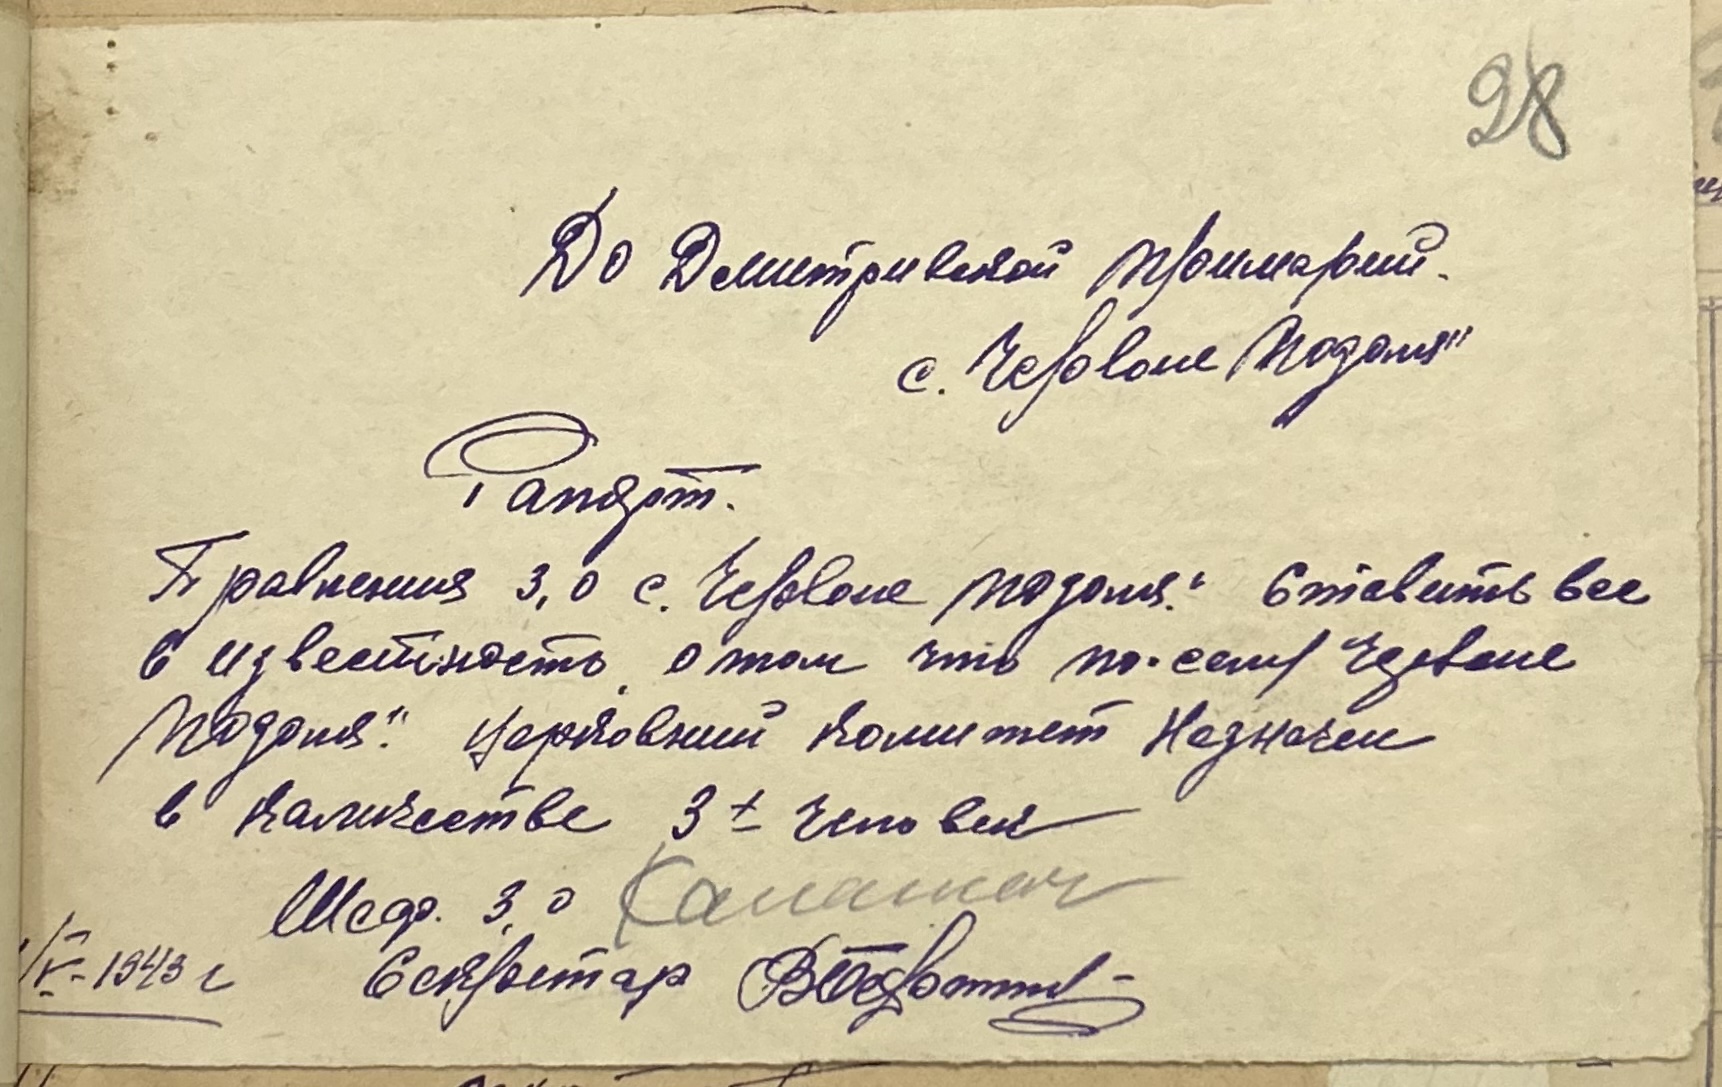 28
До Дмитривской примарии.
с. Червоне Подоля"
Рапорт.
Правления З,О с. Червоне Подоля." Ставить вас
в известность, о том что по селу Червоне
Подоля." церковний комитет назначен
в количестве 3х человек
Шеф. З,О
V-1943 г Секретар